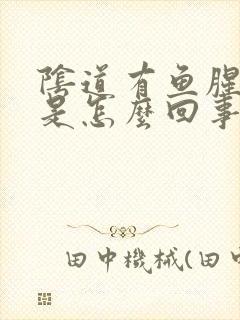 陰道有鱼腥
是怎麼回事
田中機械(田中